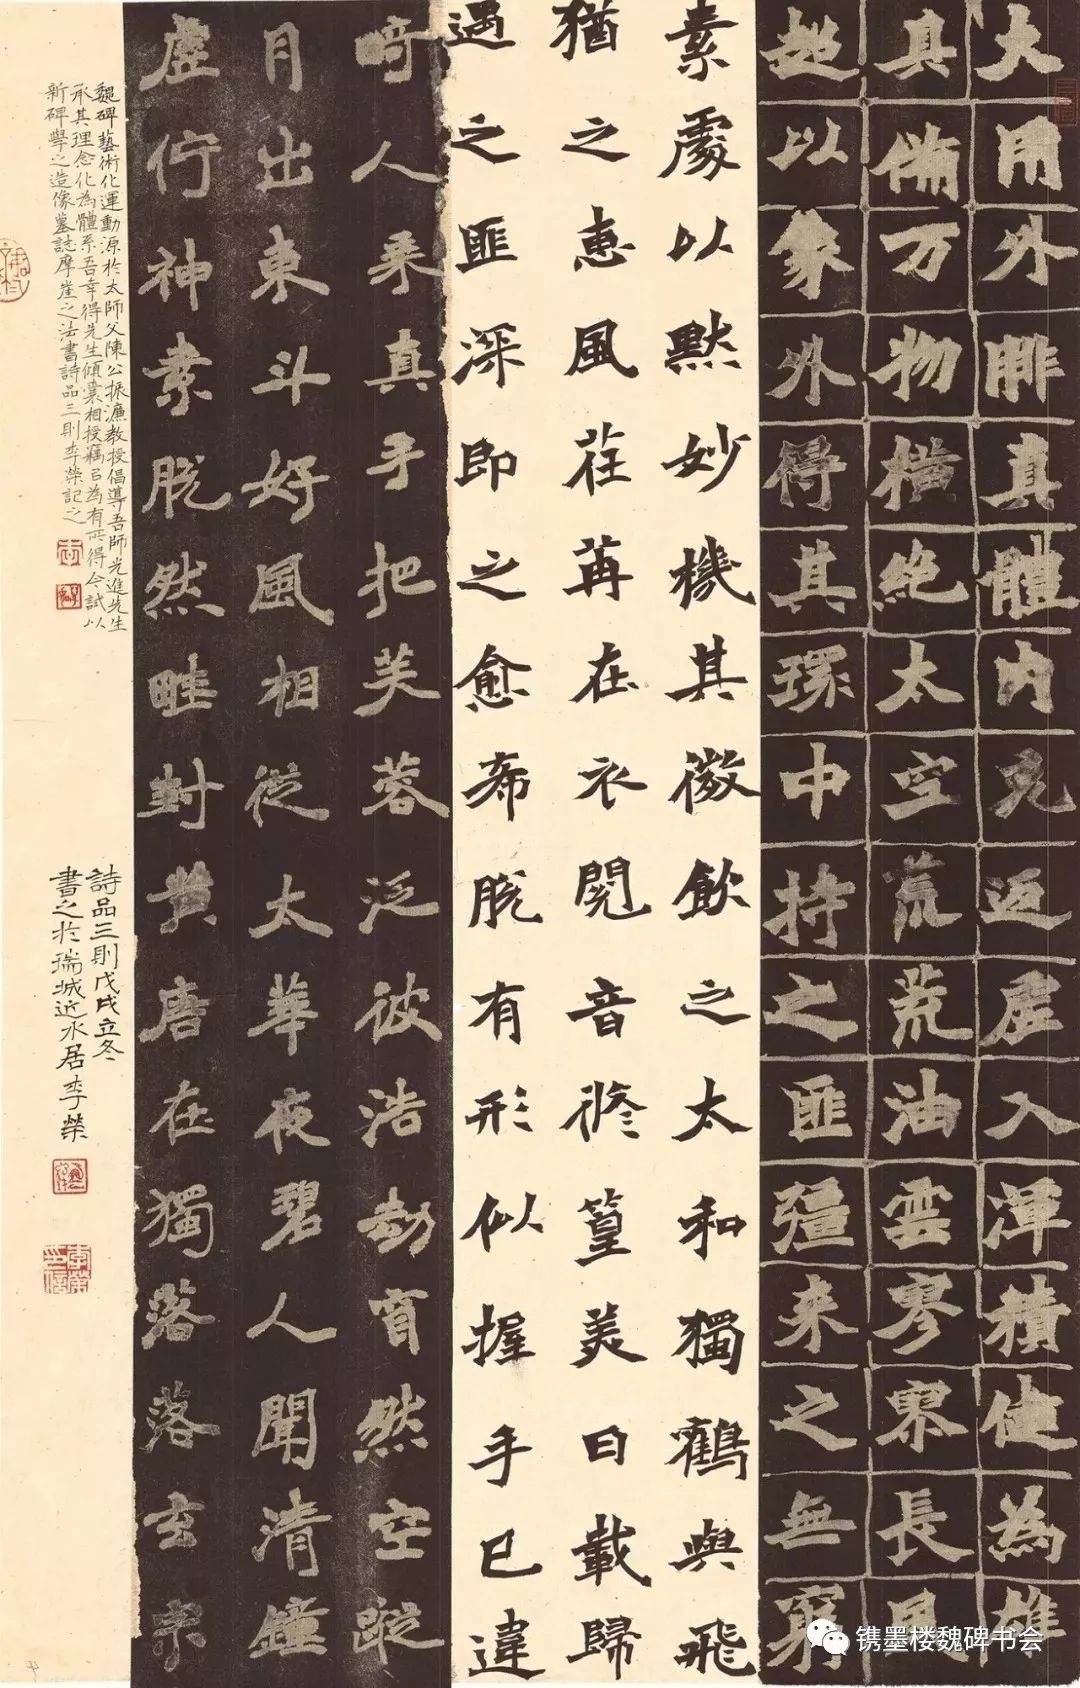 大用外腓真體內充返虛入渾積健為雄
具備万物橫絕太空荒荒油雲寥寥長風
超以象外得其環中持之匪彊来之無窮
素處以默妙機其微飲之太和獨鶴與飛
猶之惠風荏苒在衣閱音修篁美曰載歸
遇之匪深即之愈希脫有形似握手已違
畸人乘真手把芙蓉泛彼浩劫窅然空蹤
月出東斗好風相從太華夜碧人聞清鐘
虛佇神素脫然畦封黃唐在獨落落玄宗
魏碑藝術化運動源於太師父陳公振濂教授倡導吾師光進先生
承其理念化為體系吾幸得先生傾囊相授竊㠯為有所得今試以
新碑學之造像墓誌摩崖之法書詩品三則李榮記之
詩品三則戊戌立冬
書之於瑞城近水居李榮
镌墨楼魏碑书会